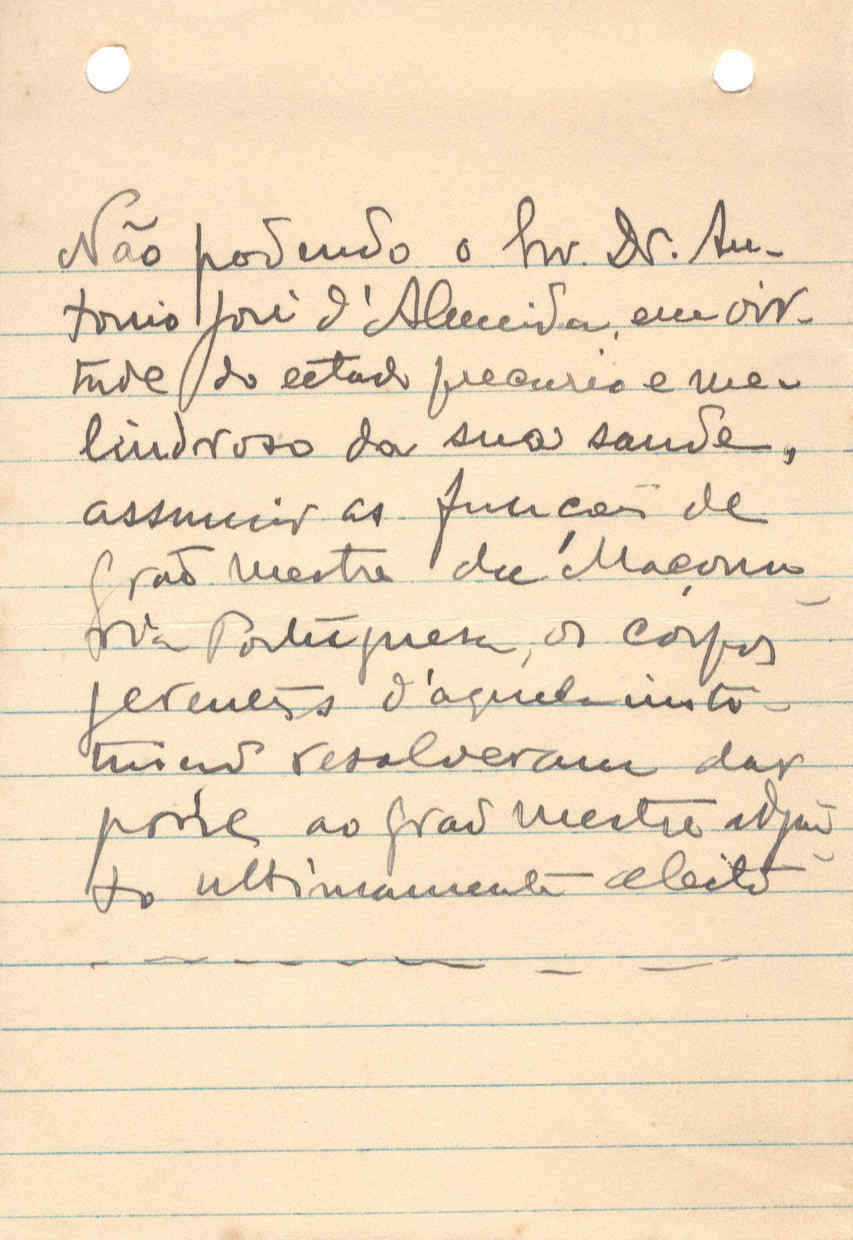 Não podendo o Snr. Dr. An-
tonio José d'Almeida, em vir-
tude do estado precario e me-
lindroso da sua saude,
assumir as funções de
grão mestre da Maçona-
ria Portuguesa, os córpos
jerentes d'aquela insti-
tuição resolveram dar
posse ao grão mestre adjun-
to ultimamente eleito